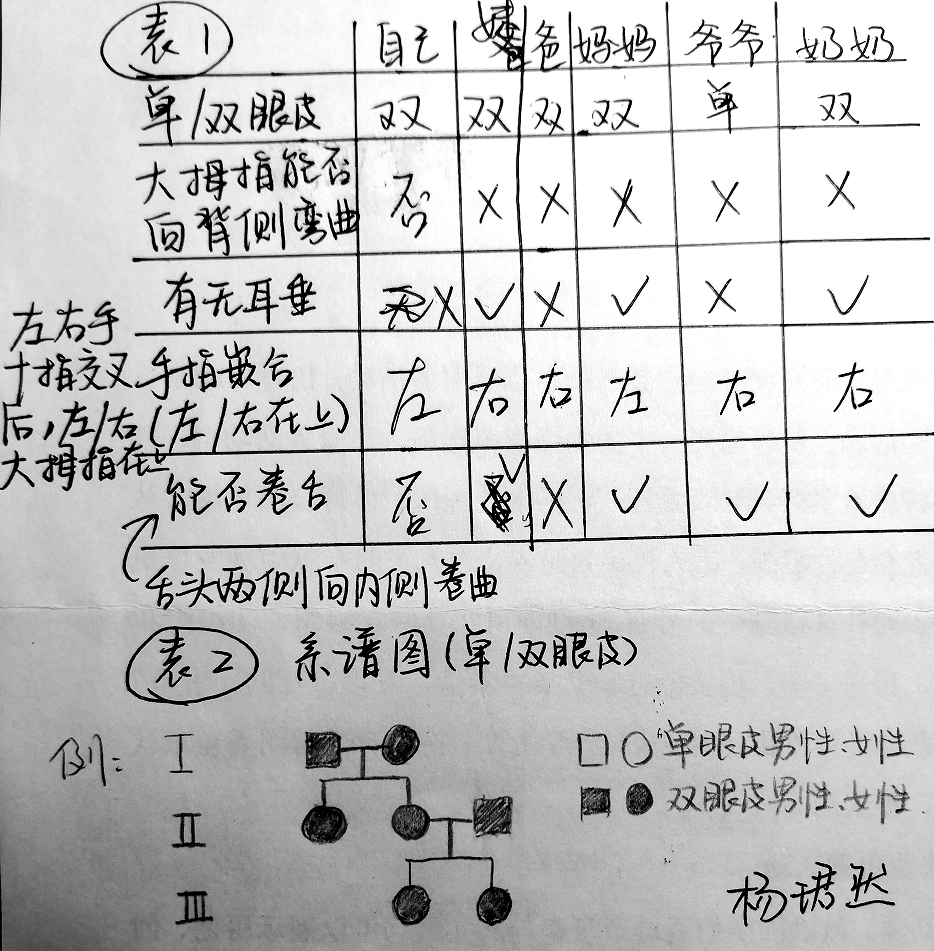 表1 自己 妹 爸 妈妈 爷爷 奶奶
单/双眼皮 双 双 双 双 单 双
大拇指能否向背侧弯曲 否 X X X X X
有无耳垂 X ✓ X ✓ X ✓
手指嵌合(左/右在上) 左 右 右 左 右 右
左右手
十指交叉
后,左/右
大拇指在上
能否卷舌 否 ✓ X ✓ ✓ ✓
舌头两侧向内侧卷曲
表2 系谱图(单/双眼皮)
例: I
II
III
□ ○ 单眼皮男性、女性
■ ● 双眼皮男性、女性
杨珺然